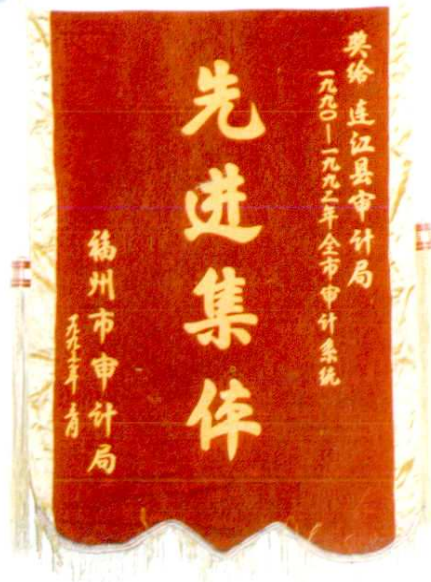 奖给 连江县审计局
一九九〇—一九九二年全市审计系统
先进集体
福州市审计局